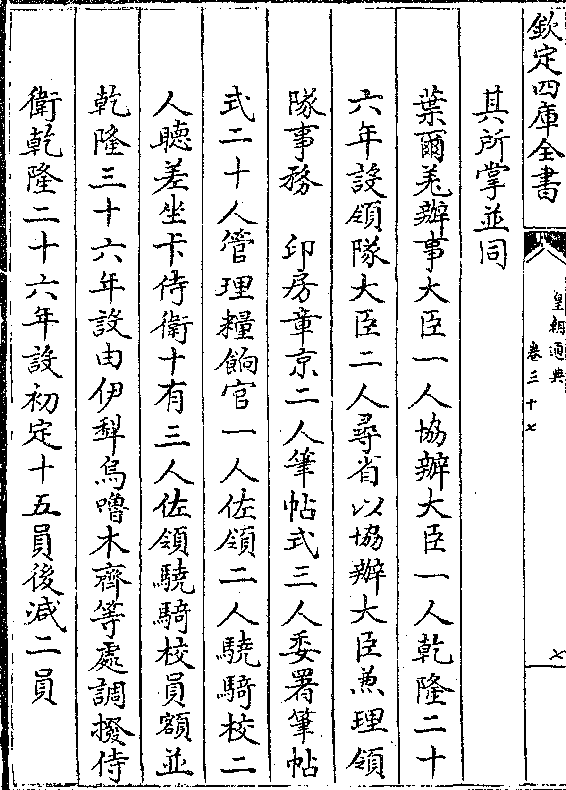 欽定四庫全書
皇朝通典
卷三十七
七
其所掌並同
葉爾羌辦事大臣一人協辦大臣一人乾隆二十
六年設領隊大臣二人尋省以協辦大臣兼理領
隊事務　印房章京二人筆帖式三人委署筆帖
式二十人管理糧餉官一人佐領二人驍騎校二
人聽差坐卡侍衛十有三人佐領驍騎校員額並
乾隆三十六年設由伊犁烏嚕木齊等處調撥侍
衛乾隆二十六年設初定十五員後減二員